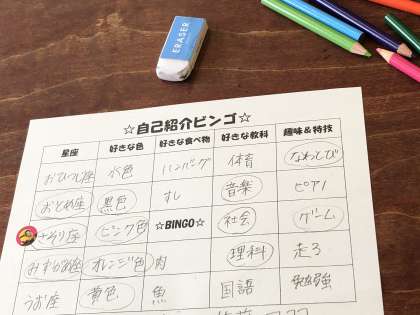 ERASER
☆自己紹介ビンゴ☆
星座 好きな色 好きな食べ物 好きな教科 趣味&特技
おひつじ座 水色 ハンバーグ 体育 なわとび
おとめ座 黒色 すし 音楽 ピアノ
さそり座 ピンク色 ☆BINGO☆ 社会 ゲーム
みずがめ座 オレンジ色 肉 理科 走る
うお座 黄色 魚 国語 勉強